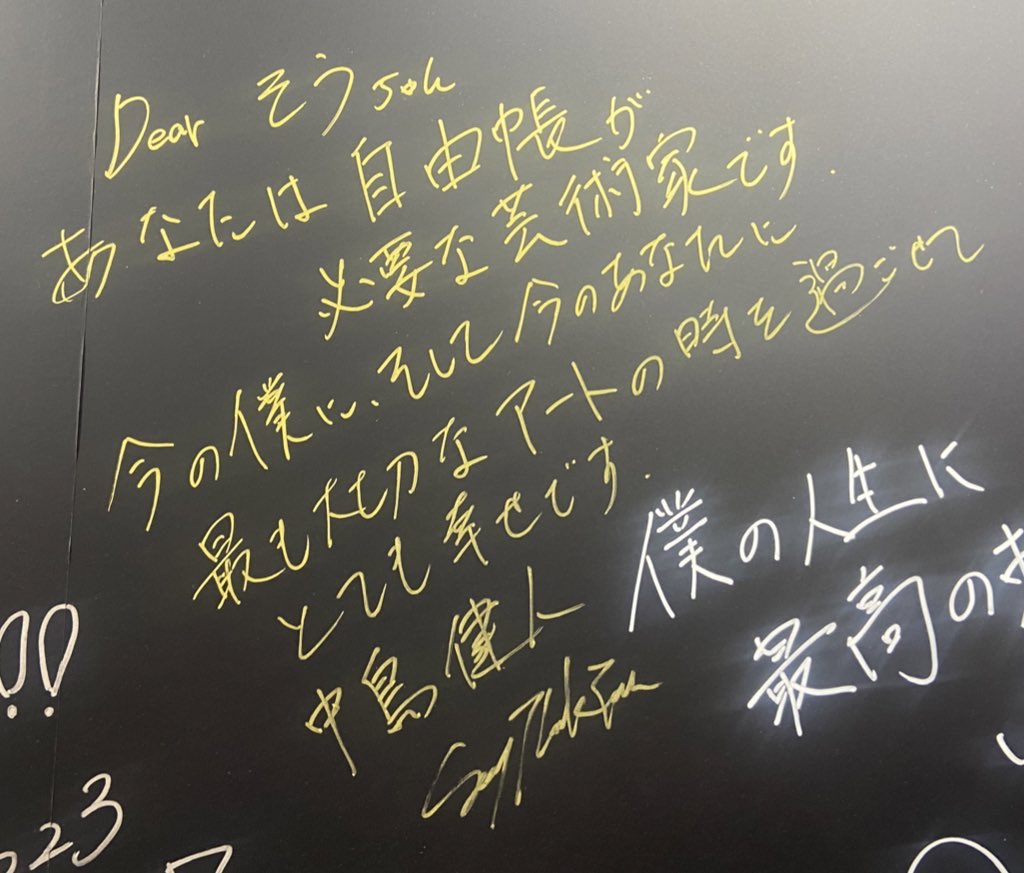 Dear そうちゃん
あなたは自由帳が
必要な芸術家です.
今の僕に、そして今のあなたに
最も大切なアートの時を過ごせて
とても幸せです.
中島健人
僕の人生に
最高の
!!
23